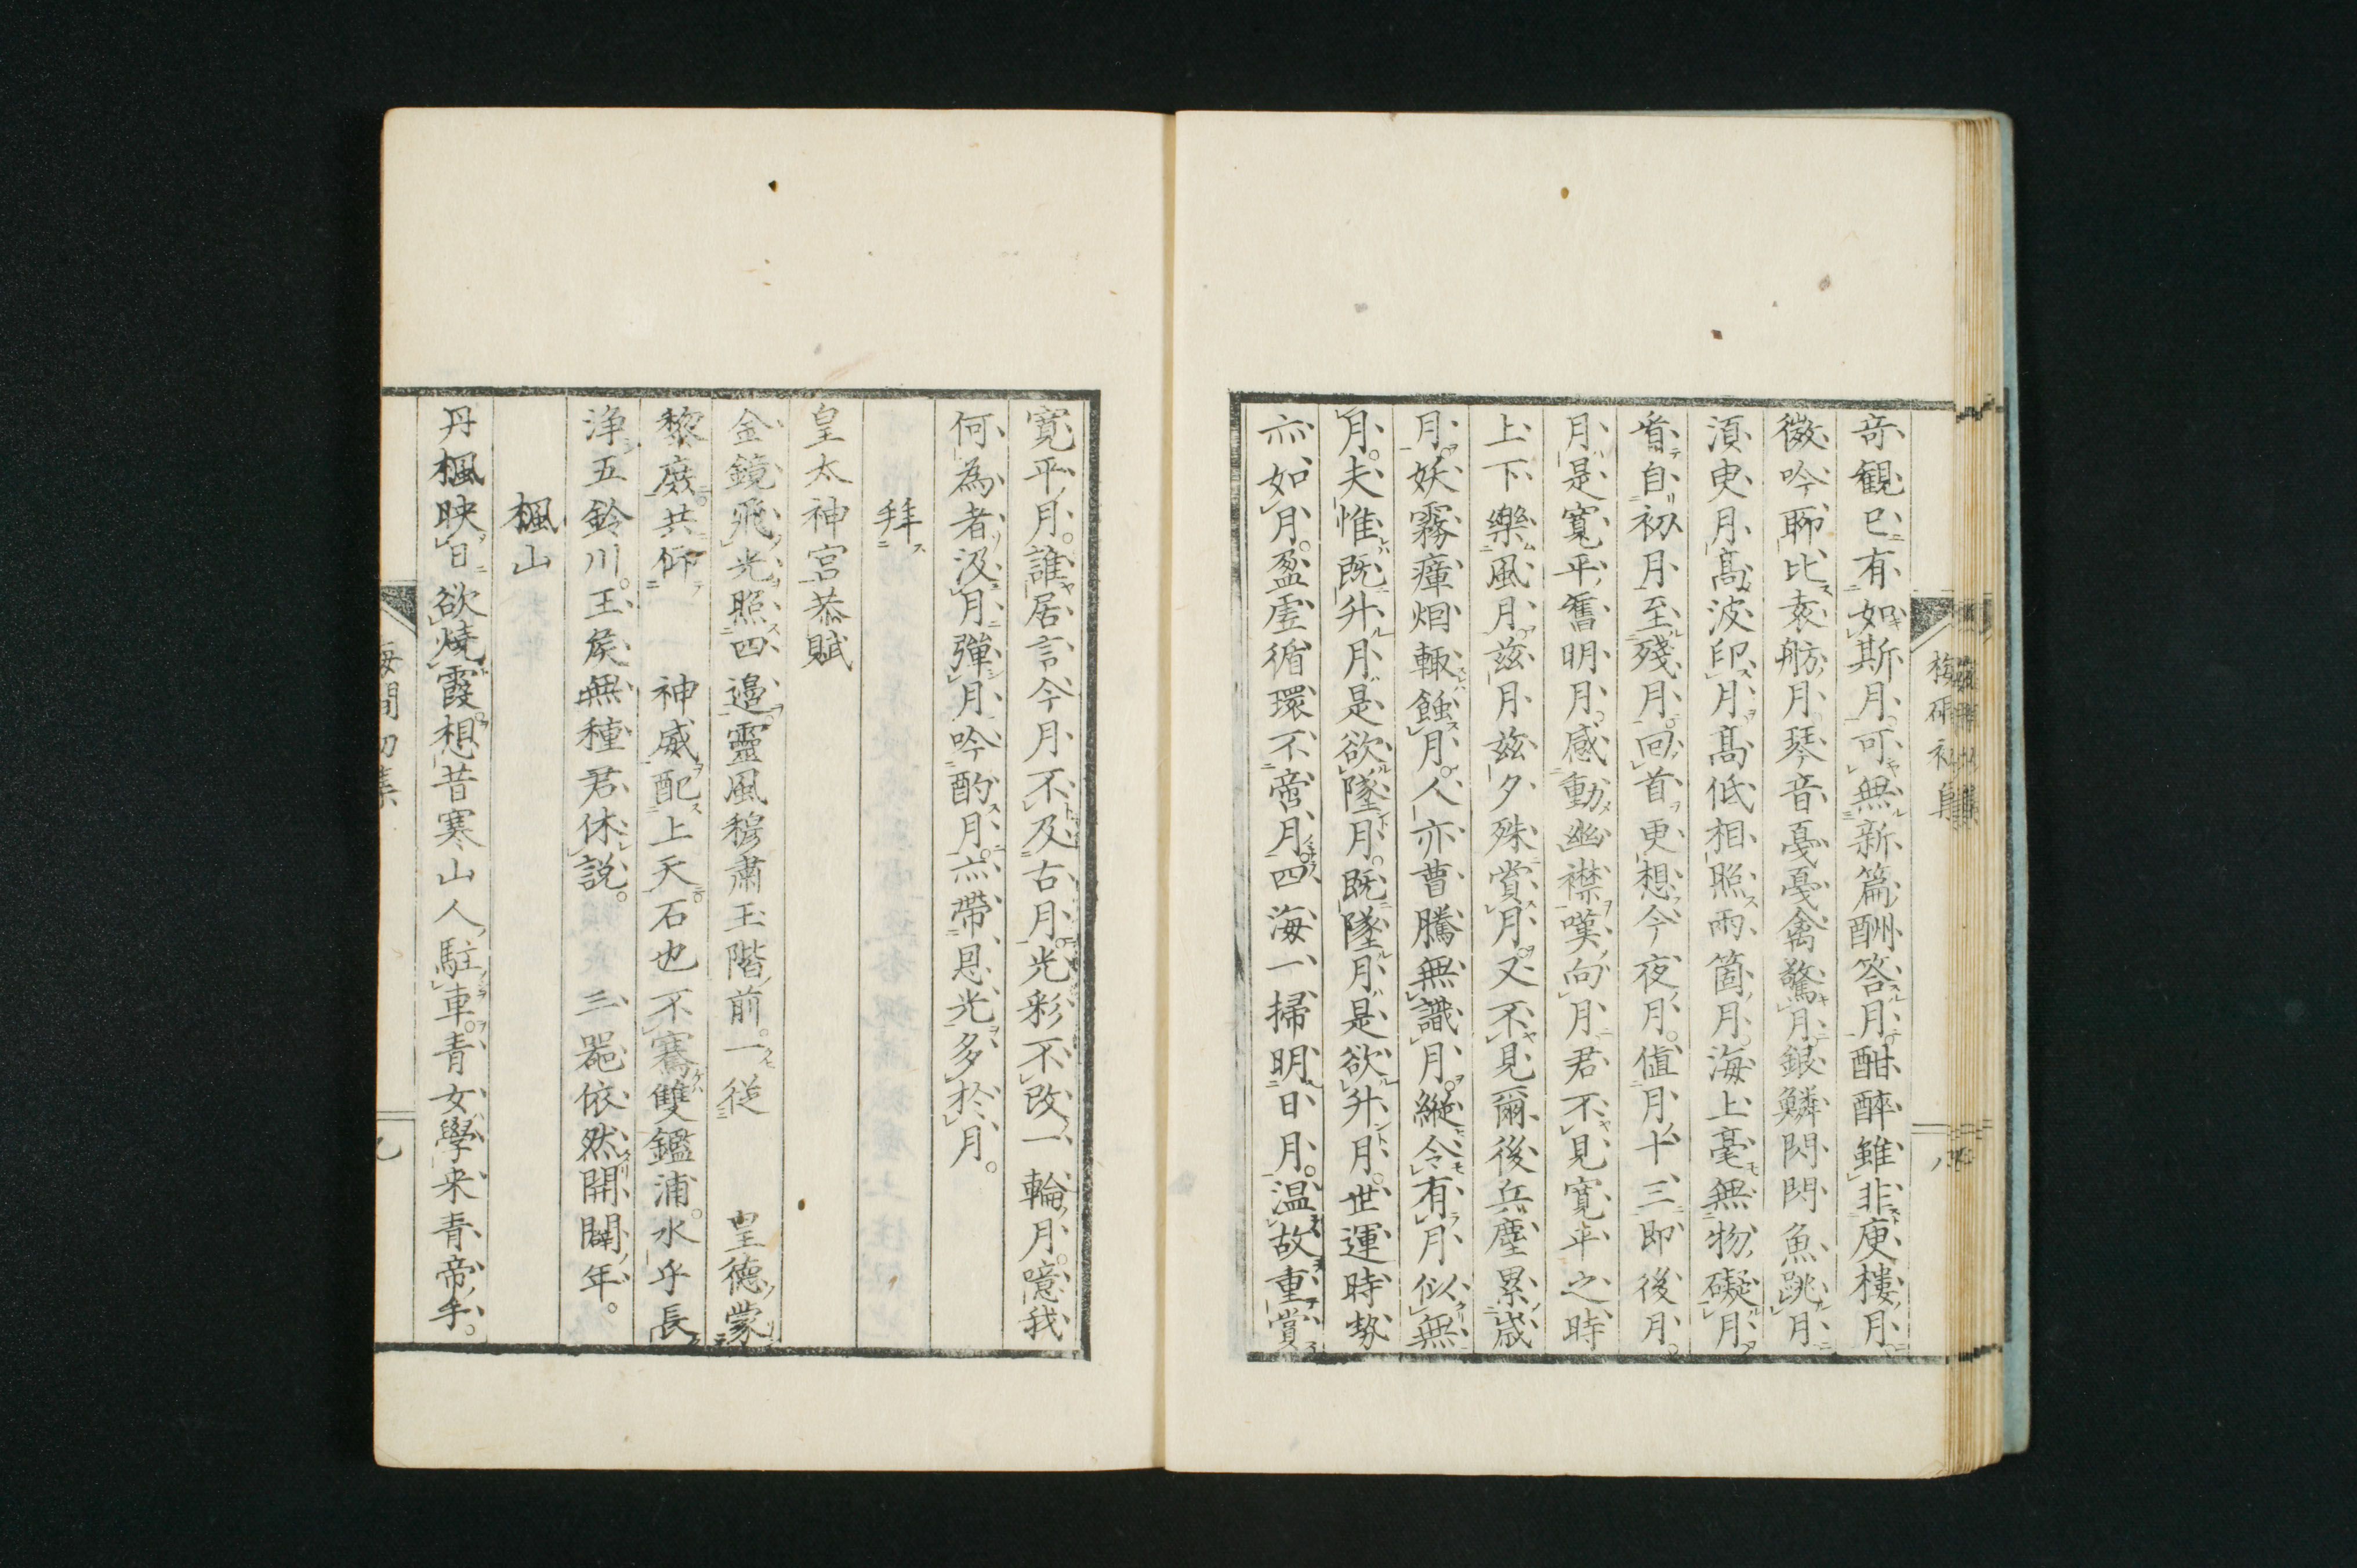 奇観已有如斯月可無新篇酬答月酣醉雖非庾樓月
微吟聊比袁舫月琴音戞戞禽驚月銀鱗閃閃魚跳月
須臾月髙波印月髙低相照兩箇月海上毫無物礙月
看自初月至殘月回首更想今夜月値月十三即後月
月是寛平舊明月感動幽襟嘆向月君不見寛平之時
上下樂風月茲月茲夕殊賞月又不見爾後兵塵累歳
月妖霧瘴烟輙蝕月人亦曹騰無識月縱令有月似無
月夫惟既升月是欲墜月既墜月是欲升月世運時勢
亦如月盈虚循環不啻月四海一掃明日月温故重賞
寛平月誰居言今月不及古月光彩不改一輪月噫我
何為者汲月彈月吟酌月亦帶恩光多於月
拜
皇太神宮恭賦
金鏡飛光照四邉靈風穆肅玉階前一従 皇徳蒙
黎庶共仰 神威配上天石也不騫雙鑑浦水乎長
浄五鈴川王矦無種君休説 三噐依然開闢年
楓山
丹楓映日欲燒霞想昔寒山人駐車青女學来青帝手